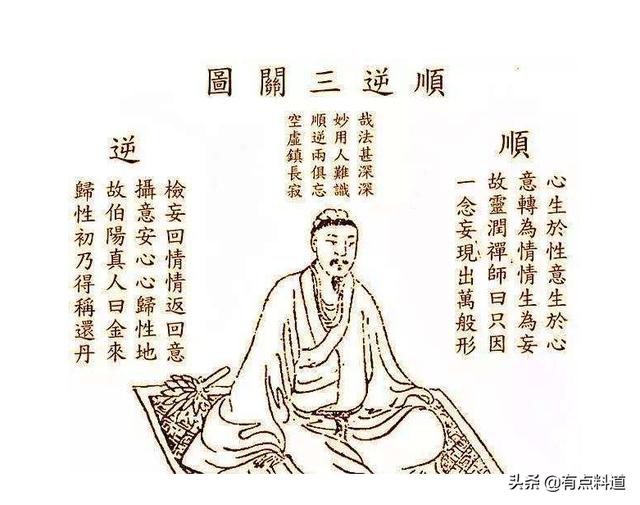 順逆三關圖
順
心生於性意生於心
意轉為情情生為妄
故靈潤禪師曰只因
一念妄現出萬般形
哉法甚深深
妙用人難識
順逆兩俱忘
空虛鎮長寂
逆
檢妄回情情返回意
攝意安心心歸性地
故伯陽真人曰金來
歸性初乃得稱還丹
头条 @有点料道